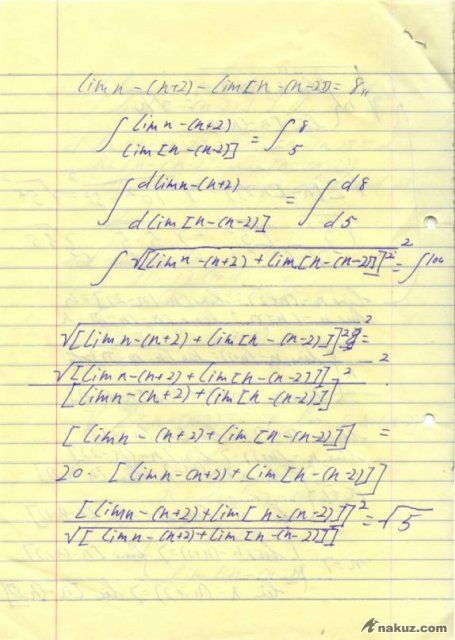 lim n-(n+2)-lim[n-(n-2)]= 8,,
∫ lim n-(n+2) / lim[n-(n-2)] = ∫ 8 / 5
∫ dlim n-(n+2) / dlim[n-(n-2)] = ∫ d8 / d5
∫ √[lim n-(n+2)+lim[n-(n-2)]]² = ² ∫100
√[lim n-(n+2)+lim[n-(n-2)]]² ² =
√[lim n-(n+2)+lim[n-(n-2)]] ² ²
[lim n-(n+2)+lim[n-(n-2)]]
[lim n-(n+2)+lim[n-(n-2)]] =
20·[lim n-(n+2)+lim[n-(n-2)]]
[lim n-(n+2)+lim[n-(n-2)]]² / √[lim n-(n+2)+lim[n-(n-2)]] = √5
nakuz.com